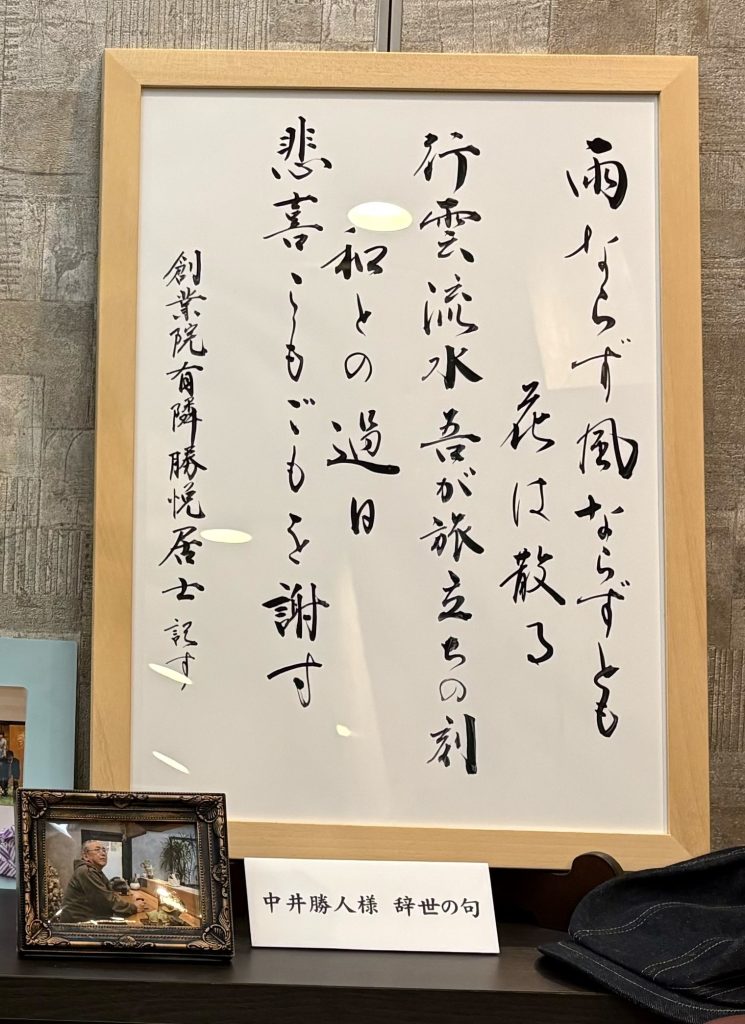 雨ならず風ならずとも
花は散る
行雲流水吾が旅立ちの刻
和との過日
悲喜こもごもを謝す
創業院有隣勝悦居士 記す
中井勝人様 辞世の句